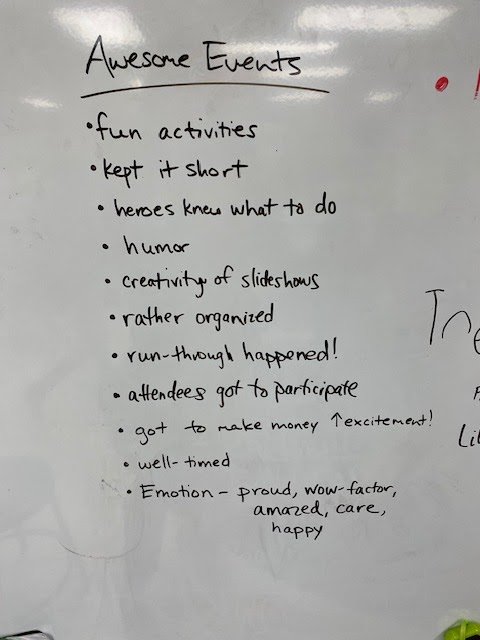 Awesome Events
• fun activities
• kept it short
• heroes knew what to do
• humor
• creativity of slideshows
• rather organized
• run-through happened!
• attendees got to participate
• got to make money ↑excitement!
• well-timed
• Emotion - proud, wow-factor,
amazed, care,
happy